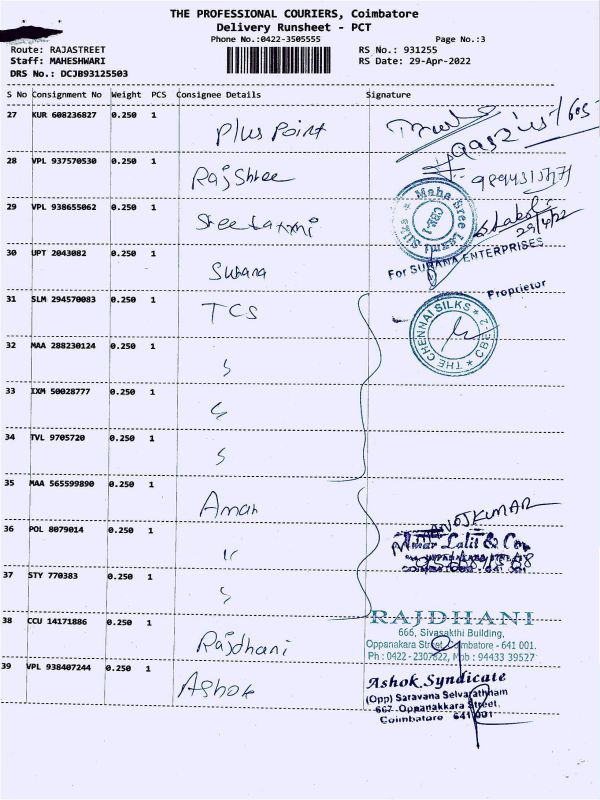 THE PROFESSIONAL COURIERS, Coimbatore
Delivery Runsheet - PCT
Phone No.:0422-3505555 Page No.:3
Route: RAJASTREET RS No.: 931255
Staff: MAHESHWARI RS Date: 29-Apr-2022
DRS No.: DCJB93125503
S No Consignment No Weight PCS Consignee Details Signature
27 KUR 608236827 0.250 1 Plus Point
28 VPL 937570530 0.250 1 RajShree
29 VPL 938655062 0.250 1 Sree Laxmi
Maha Sree Laxmi Silks
CBE-1
29/4/22
30 UPT 2043082 0.250 1 Surana
For SURANA ENTERPRISES
Proprietor
31 SLM 294570083 0.250 1 TCS
THE CHENNAI SILKS
CBE-2
32 MAA 288230124 0.250 1 ς
33 IXM 50028777 0.250 1 ς
34 TVL 9705720 0.250 1 ς
35 MAA 565599890 0.250 1 Aman
MANOJKUMAR
36 POL 8079014 0.250 1 "
Lalit & Co.
37 STY 770383 0.250 1 ς
38 CCU 14171886 0.250 1 Rajdhani
RAJDHANI
666, Sivasakthi Building,
Oppanakara Street, Coimbatore - 641 001.
Ph : 0422 - 2307622, Mob : 94433 39527
39 VPL 938407244 0.250 1 Ashok
Ashok Syndicate
(Opp) Saravana Selvarathnam
667 Oppanakkara Street,
Coimbatore 641 001